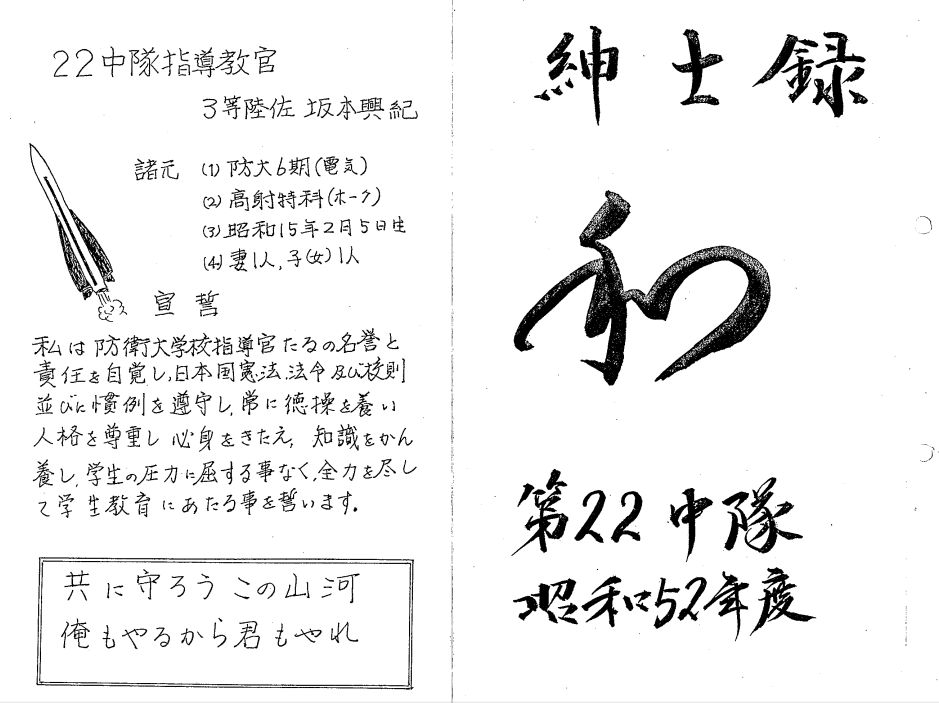 紳士録
和
第22中隊
昭和52年度
22中隊指導教官
3等陸佐 坂本興紀
諸元 (1) 防大6期(電気)
(2) 高射特科(ホーク)
(3) 昭和15年2月5日生
(4) 妻1人,子(女)1人
宣誓
私は防衛大学校指導官たるの名誉と
責任を自覚し,日本国憲法,法令及び校則
並びに慣例を遵守し,常に徳操を養い
人格を尊重し心身をきたえ,知識をかん
養し,学生の圧力に屈する事なく,全力を尽し
て学生教育にあたる事を誓います。
共に守ろうこの山河
俺もやるから君もやれ